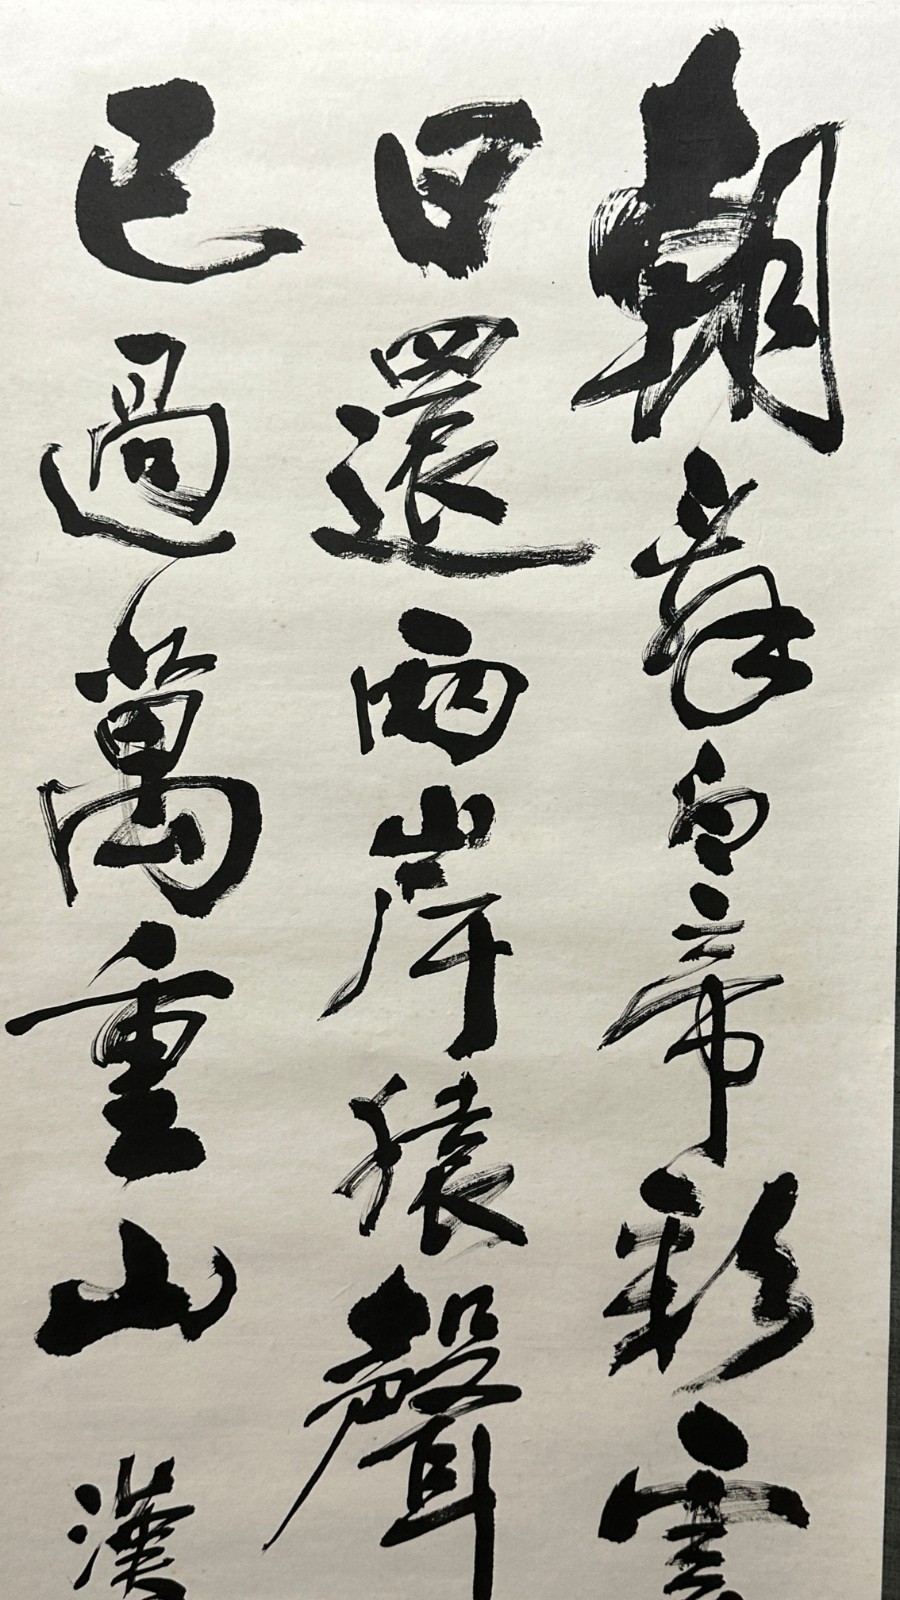 朝辞白帝彩雲
日還兩岸猿聲
已過萬重山 漢